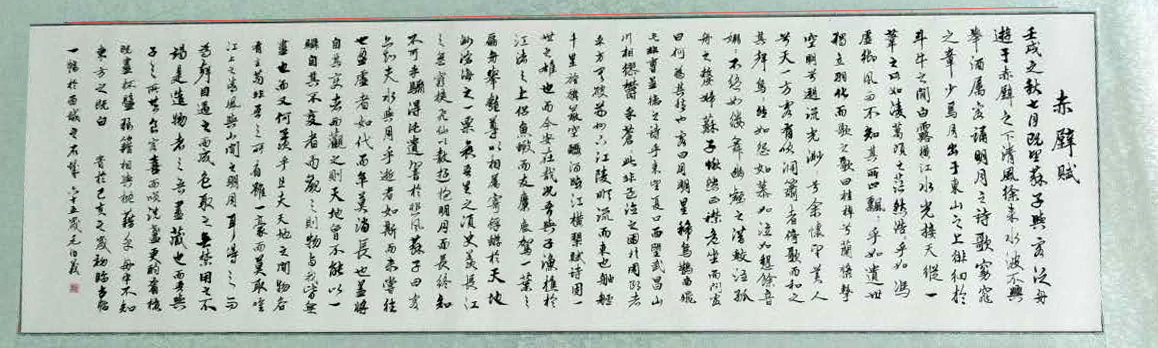 赤壁賦
壬戌之秋七月既望蘇子與客泛舟
遊于赤壁之下清風徐來水波不興
舉酒屬客誦明月之詩歌窈窕
之章少焉月出于東山之上徘徊於
斗牛之間白露橫江水光接天縱一
葦之所如凌萬頃之茫然浩乎如馮
虛御風而不知其所止飄飄乎如遺世
獨立羽化而歌之歌曰桂棹兮蘭槳擊
空明兮溯流光渺兮余懷望美人
兮天一方客有吹洞簫者倚歌而和之
其聲烏烏然如怨如慕如泣如愬餘音
嫋嫋不絕如縷舞幽壑之潛蛟泣孤
舟之嫠婦蘇子愀然正襟危坐而問客
曰何為其然也客曰月明星稀烏鵲南飛
此非曹孟德之詩乎東望夏口西望武昌山
川相繆鬱乎蒼此非孟德之困於周郎者
乎方其破荊州下江陵順流而東也舳艫
千里旌旗蔽空釃酒臨江橫槊賦詩固一
世之雄也而今安在哉況吾與子漁樵於
江渚之上侶魚蝦而友麋鹿駕一葉之
扁舟舉匏尊以相屬寄蜉蝣於天地
渺滄海之一粟哀吾生之須臾羨長江
之無窮挾飛仙以遨遊抱明月而長終知
不可乎驟得託遺響於悲風蘇子曰客
亦知夫水與月乎逝者如斯而未嘗往
也盈虛者如代而卒莫消長也蓋將
自其變者而觀之則天地曾不能以一
瞬自其不變者而觀之則物與我皆無
盡也而又何羨乎且夫天地之間物各
有主苟非吾之所有雖一毫而莫取惟
江上之清風與山間之明月耳得之而
為聲目遇之而成色取之無禁用之不
竭是造物者之無盡藏也而吾與
子之所共食客喜而笑洗盞更酌肴核
既盡杯盤狼籍相與枕藉乎舟中不知
東方之既白 於己亥之歲初臨
一幅於西城之石 六十五歲元伯義